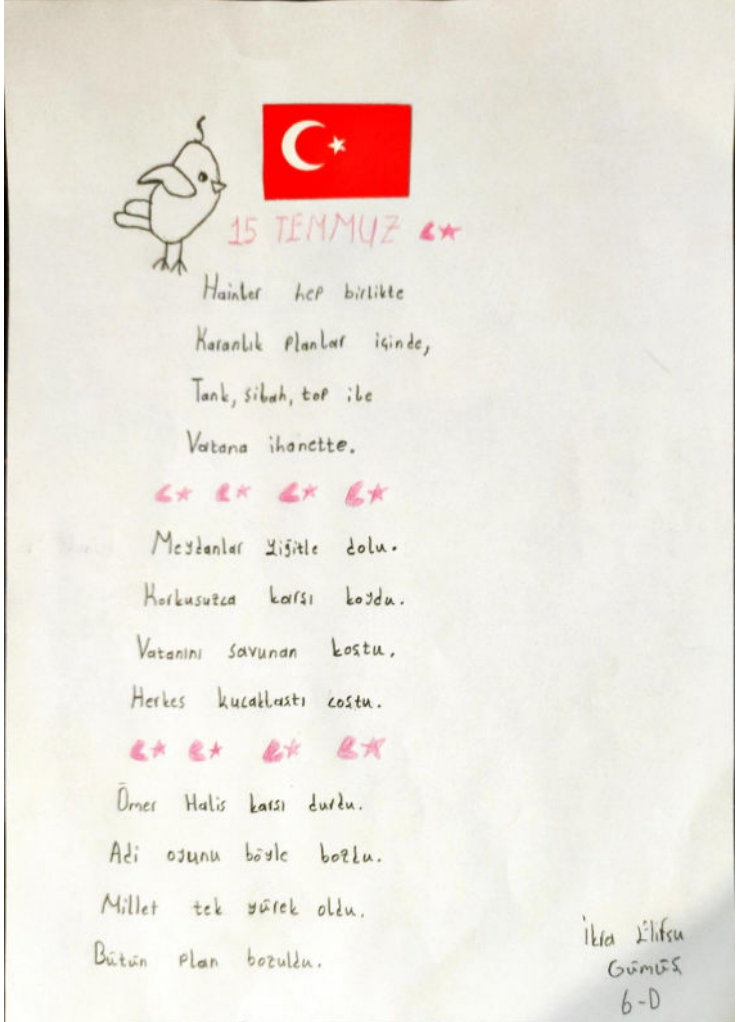 15 TEMMUZ
Hainler hep birlikte
Karanlık planlar içinde,
Tank, silah, top ile
Vatana ihanette.
Meydanlar yiğitle dolu.
Korkusuzca karşı koydu.
Vatanını savunan koştu.
Herkes kucaklaştı coştu.
Ömer Halis karşı durdu.
Adi oyunu böyle bozdu.
Millet tek yürek oldu.
Bütün plan bozuldu.
İkra Elifsu
Gümüş
6-D